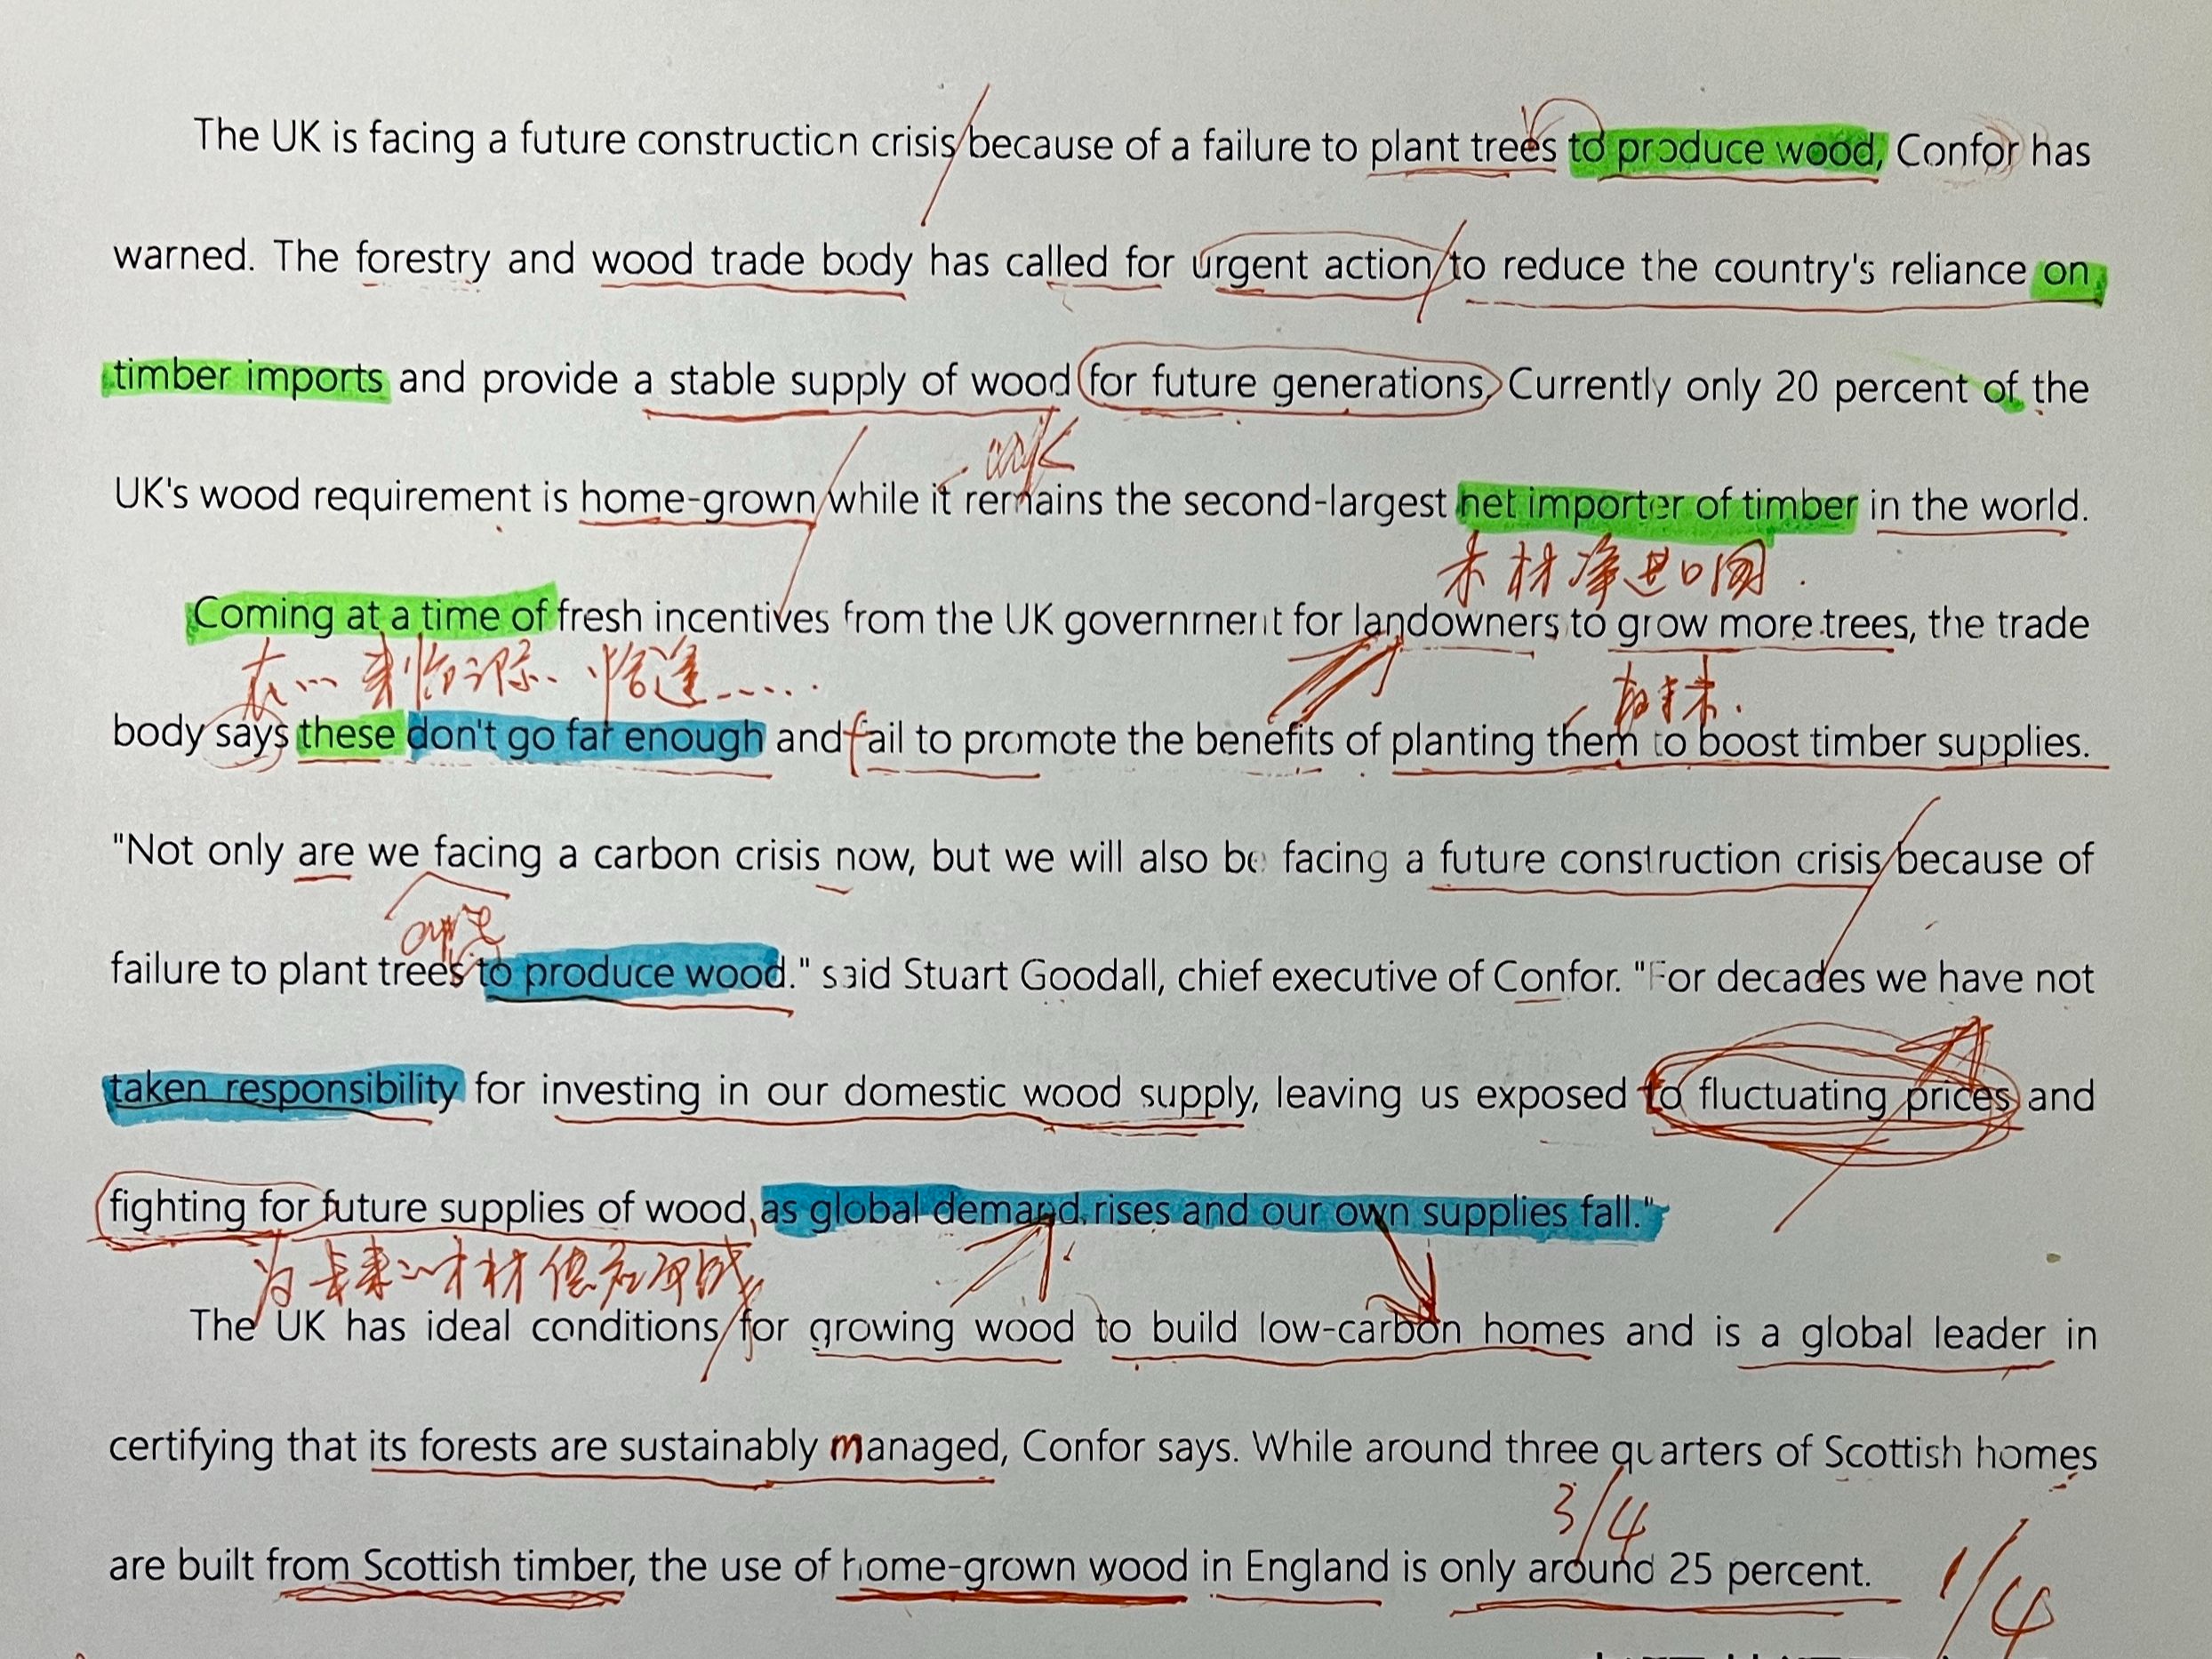 The UK is facing a future construction crisis because of a failure to plant trees to produce wood, Confor has
warned. The forestry and wood trade body has called for urgent action to reduce the country's reliance on
timber imports and provide a stable supply of wood for future generations. Currently only 20 percent of the
UK's wood requirement is home-grown while it remains the second-largest net importer of timber in the world.
木材净进口国.
Coming at a time of fresh incentives from the UK government for landowners to grow more trees, the trade
在…来临之际、恰逢……
body says these don't go far enough and fail to promote the benefits of planting them to boost timber supplies.
"Not only are we facing a carbon crisis now, but we will also be facing a future construction crisis because of
failure to plant trees to produce wood." said Stuart Goodall, chief executive of Confor. "For decades we have not
taken responsibility for investing in our domestic wood supply, leaving us exposed to fluctuating prices and
fighting for future supplies of wood, as global demand rises and our own supplies fall."
The UK has ideal conditions for growing wood to build low-carbon homes and is a global leader in
certifying that its forests are sustainably managed, Confor says. While around three quarters of Scottish homes
3/4
are built from Scottish timber, the use of home-grown wood in England is only around 25 percent.
1/4